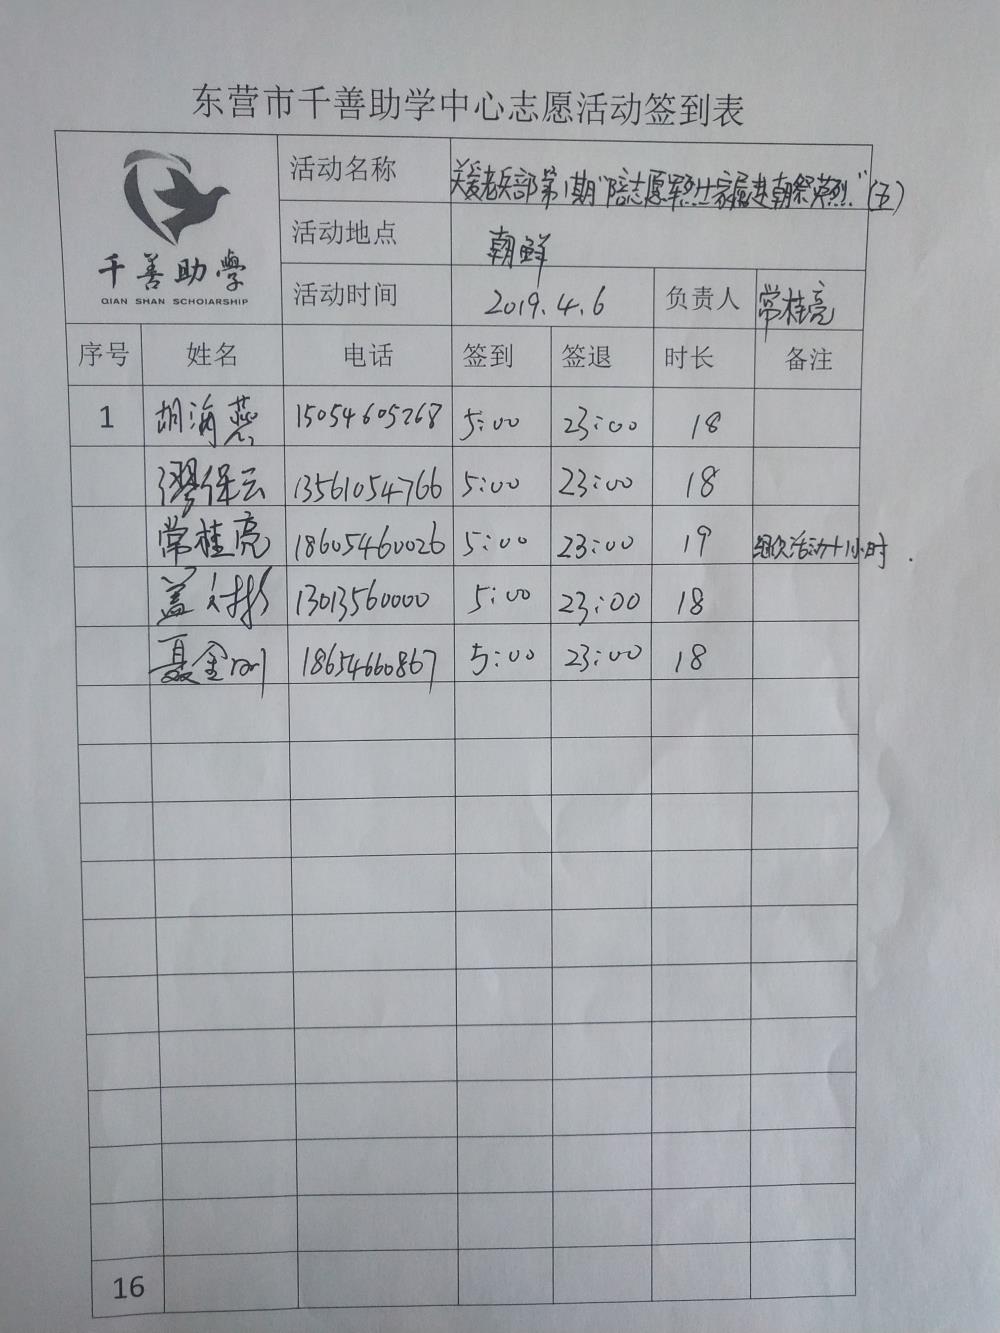 东营市千善助学中心志愿活动签到表
千善助学
QIAN SHAN SCHOIARSHIP
活动名称 关爱老兵部第1期"陪志愿军烈士家属赴朝祭英烈"(五)
活动地点 朝鲜
活动时间 2019.4.6 负责人 常桂亮
序号 姓名 电话 签到 签退 时长 备注
1 胡海燕 15054605268 5:00 23:00 18
缪保云 13561054766 5:00 23:00 18
常桂亮 18605460026 5:00 23:00 19 组织活动+1小时.
盖 13013560000 5:00 23:00 18
聂金 18654660867 5:00 23:00 18
16